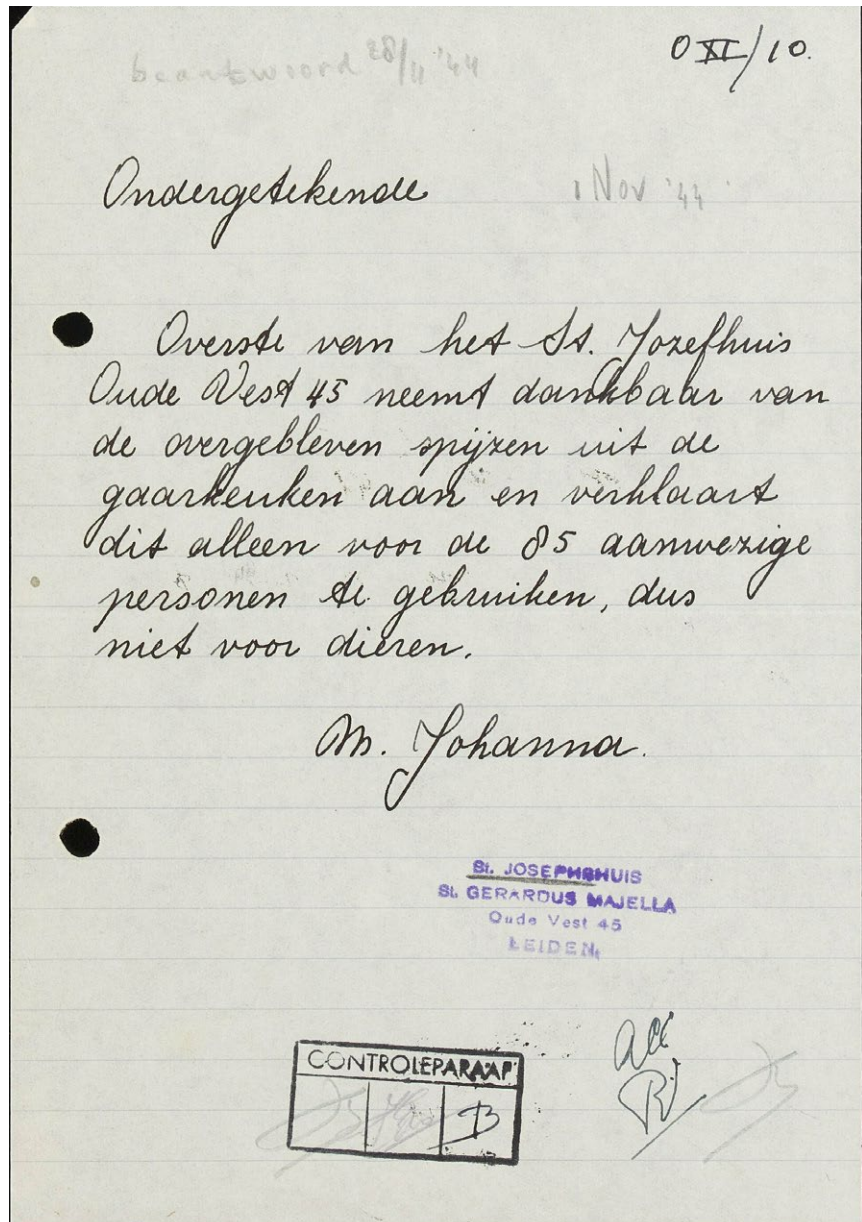 O XI/10.
beantwoord 28/11 '44
Ondergetekende
1 Nov '44
Overste van het St. Jozefhuis
Oude Vest 45 neemt dankbaar van
de overgebleven spijzen uit de
gaarkeuken aan en verklaart
dit alleen voor de 85 aanwezige
personen te gebruiken, dus
niet voor dieren.
M. Johanna.
St. JOSEPHSHUIS
St. GERARDUS MAJELLA
Oude Vest 45
LEIDEN
CONTROLEPARAAF
B